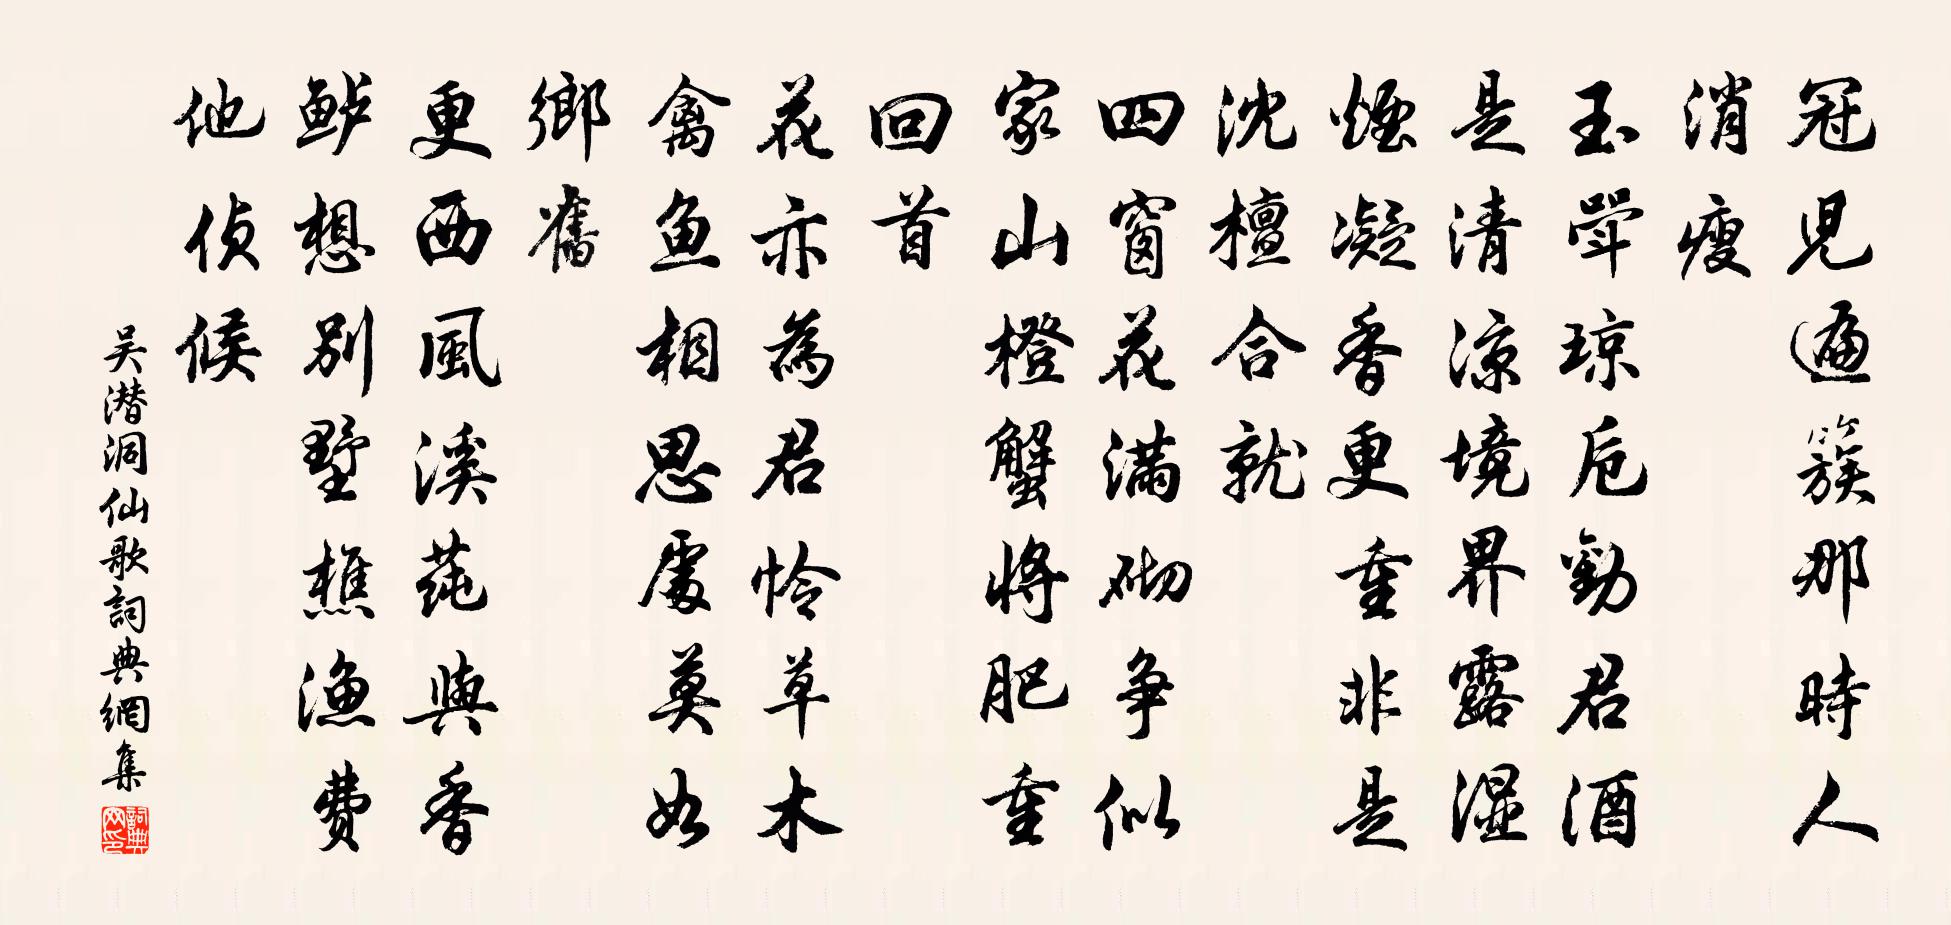 冠兒遍簇那時人
消瘦
玉斝琼卮勸君酒
是清涼境界露濕
煙凝香更重非是
沈檀合就
四窗花滿砌争似
家山橙蟹将肥重
回首
花亦為君怜草木
禽魚相思處莫如
鄉舊
更西風溪蒓與香
鲈想別墅樵漁費
他偵候
吴潜洞仙歌詞典網集
詞典网印